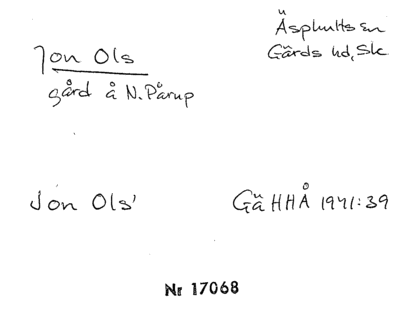 Jon Ols
Äsphults sn
Gärds hd, Sk
gård å N. Pårup
Jon Ols'
GäHHÅ 1941:39
Nr 17068